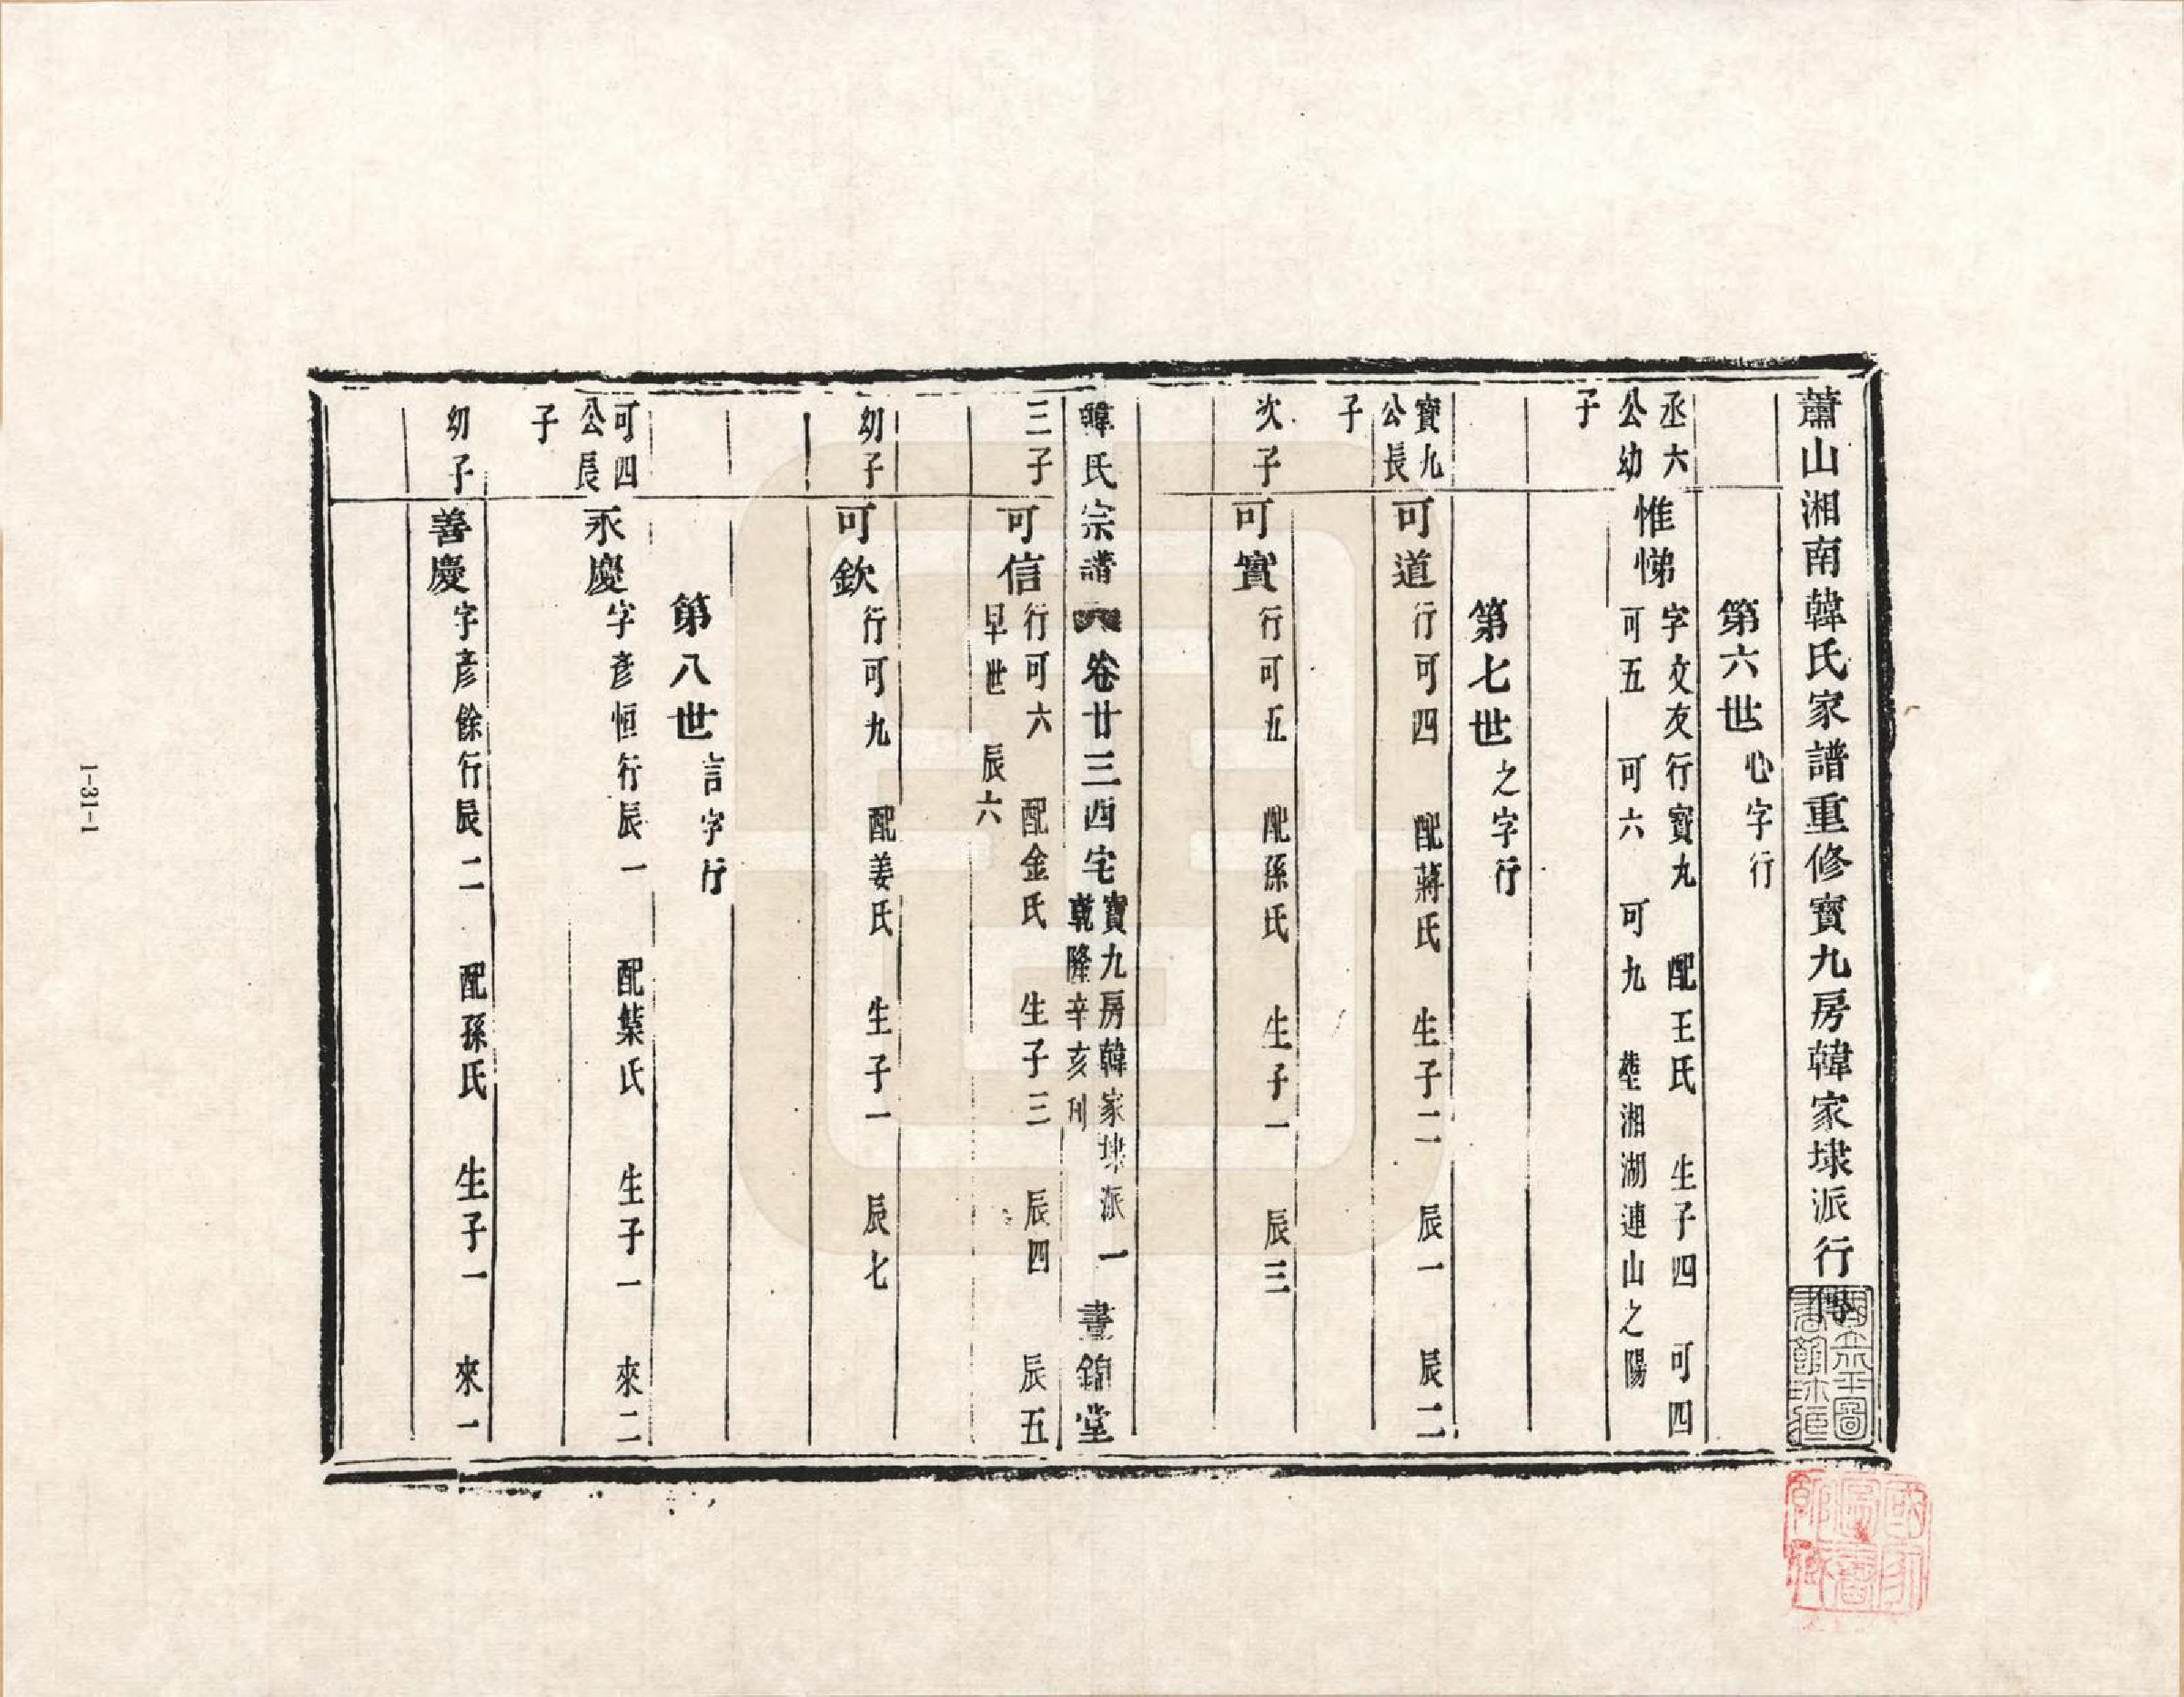 蕭山湘南韓氏家譜重修寶九房韓家埭派行傳
第六世 心字行
丞六公幼子
惟悌 字文友行寶九 配王氏 生子四 可四
可五 可六 可九 塟湘湖連山之陽
第七世 之字行
寶九公長子
可道 行可四 配蔣氏 生子二 辰一 辰二
次子 可實 行可五 配孫氏 生子一 辰三
韓氏宗譜 卷廿三西宅 寶九房韓家埭派 一 乾隆辛亥刊 晝錦堂
三子 可信 行可六 配金氏 生子三 辰四 辰五
早世 辰六
幼子 可欽 行可九 配姜氏 生子一 辰七
第八世 言字行
可四公長子
永慶 字彥恒行辰一 配葉氏 生子一 來二
幼子 善慶 字彥餘行辰二 配孫氏 生子一 來一
1-31-1